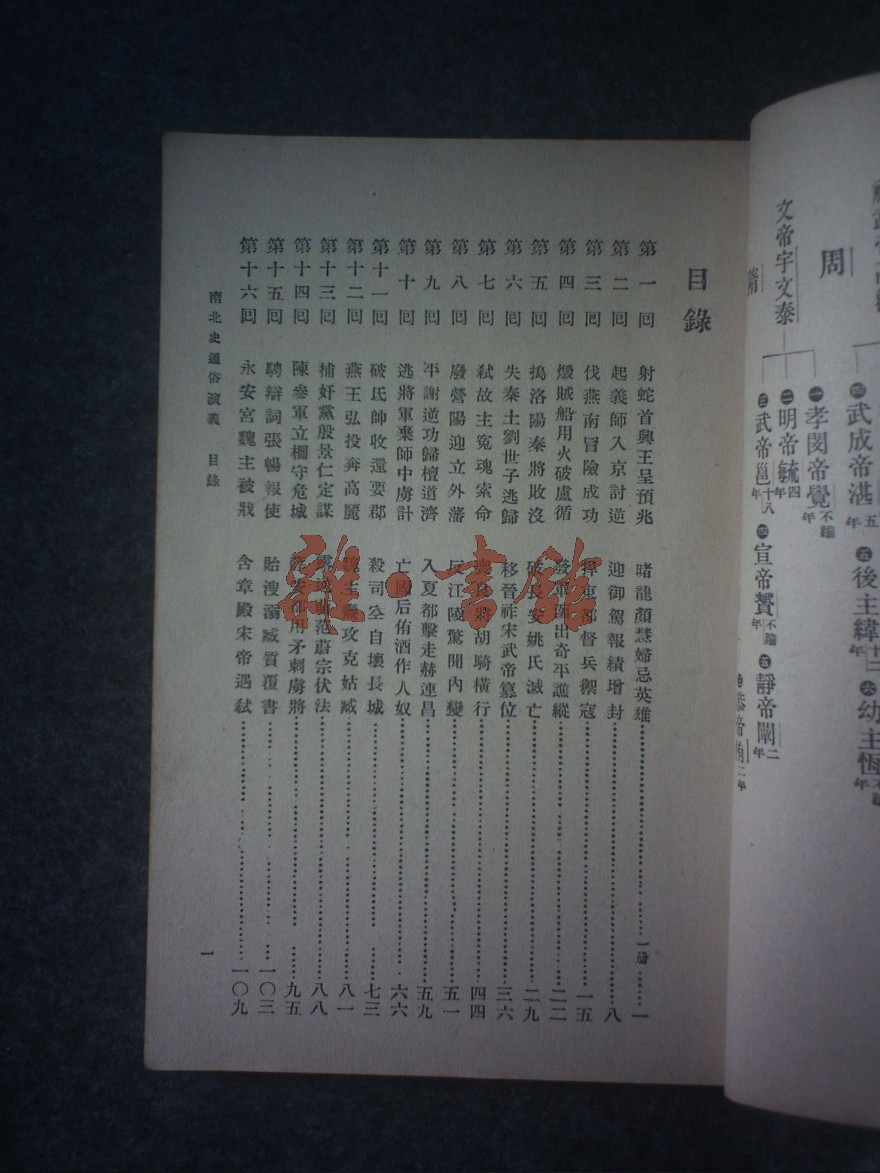 周
文帝宇文泰
㊃武成帝湛五年 ㊄後主緯十二年 ㊅幼主恆不踰年
㊀孝閔帝覺不踰年
㊁明帝毓四年
㊂武帝邕十八年 ㊃宣帝贇不踰年 ㊄靜帝闡二年
隋
恭帝侑二年
目錄
第一回 射蛇首興王呈預兆 睹龍顏慧婦忌英雄 一册 一
第二回 起義師入京討逆 迎御駕報績增封 八
第三回 伐燕南冒險成功 捍東都督兵禦寇 一五
第四回 燬賊船用火破盧循 發軍謀出奇平譙縱 二二
第五回 搗洛陽秦將敗沒 破長安姚氏滅亡 二九
第六回 失秦土劉世子逃歸 移晉祚宋武帝篡位 三六
第七回 弒故主冤魂索命 喪良將胡騎橫行 四四
第八回 廢營陽迎立外藩 反江陵驚聞內變 五一
第九回 平謝逆功歸檀道濟 入夏都擊走赫連昌 五九
第十回 逃將軍棄師中虜計 亡國后侑酒作人奴 六六
第十一回 破氐帥收還要郡 殺司空自壞長城 七三
第十二回 燕王弘投奔高麗 魏主燾攻克姑臧 八一
第十三回 捕奸黨殷景仁定謀 露逆萌范蔚宗伏法 八八
第十四回 陳參軍立柵守危城 薛安都用矛刺虜將 九五
第十五回 騁辯詞張暢報使 貽溲溺臧質覆書 一〇三
第十六回 永安宮魏主被戕 含章殿宋帝遇弒 一〇九
南北史通俗演義 目錄
一
雜·書館